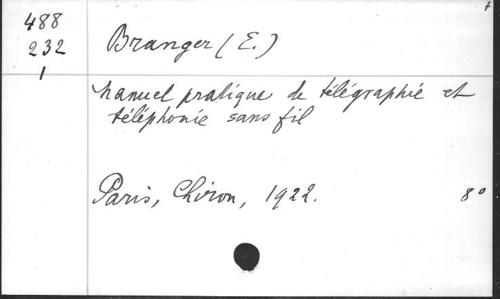 488
232
1
Branger (E.)
Manuel pratique de télégraphie et
téléphonie sans fil
Paris, Chiron, 1922. 8°